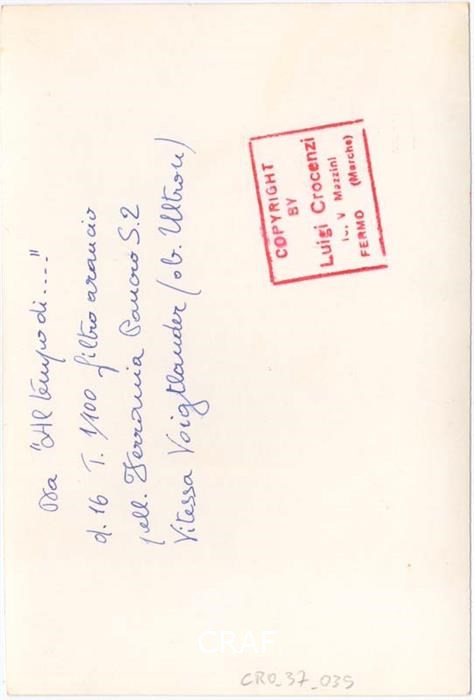 Da "Al tempo di...."
d. 16 T. 1/100 filtro arancio
pell. Ferrania Pancro S.2
Vitessa Voigtlander (ob. Ultron)
COPYRIGHT
BY
Luigi Crocenzi
V Mazzini
FERMO (Marche)
CRAF
CRO_37_035